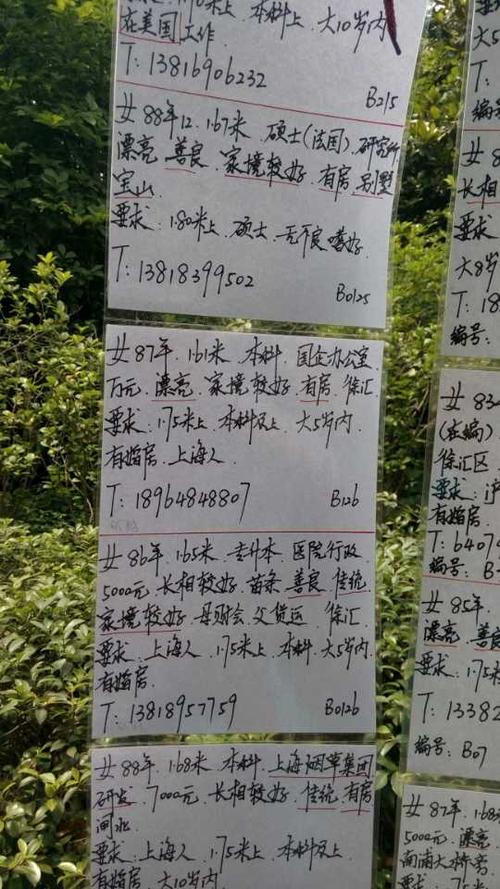 在美国工作
T: 13816906232
B215
女 88年.12. 1.67米. 硕士(法国). 研究所
漂亮. 善良. 家境较好. 有房. 别墅
宝山
要求: 1.80米上. 硕士. 无不良嗜好.
T: 13818399502
B0125
女 87年. 1.61米. 本科. 国企办公室
万元. 漂亮. 家境较好. 有房. 徐汇
要求: 1.75米上. 本科及上. 大5岁内
有婚房. 上海人.
T: 18964848807
B126
女 86年. 1.65米. 专升本. 医院行政
5000元. 长相较好. 苗条. 善良. 传统.
家境较好. 母财会. 父货运. 徐汇
要求: 上海人. 1.75米上. 本科. 大5岁内
有婚房.
T: 13818957759
B0126
女 88年. 1.68米. 本科. 上海烟草集团
研发. 7000元. 长相较好. 传统. 有房
闸北
要求: 上海人. 1.75米上. 本科及上
有婚房. 大10岁内
要求
大5
编号
女 8
长相
要求
大8岁
T: 18
编号:
女 834
(在编)
徐汇区
要求: 沪
有婚房
T: 6407
编号: B
女 85年.
漂亮. 善良
要求: 1.75米
T: 13382
编号: B07
女 87年. 1.68
5000元. 漂亮